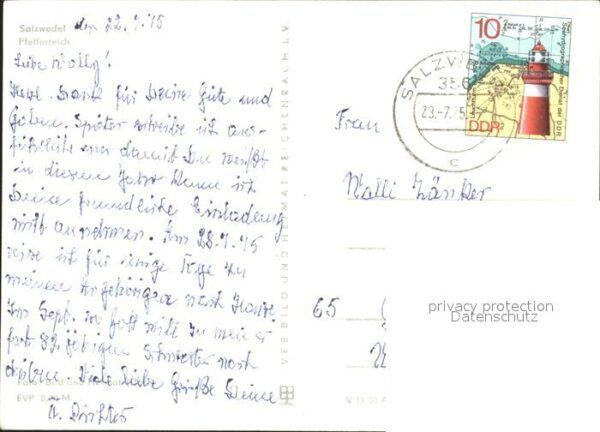 Salzwedel
Pfefferteich
den 22.7.75
Liebe Wally!
Herzl. Dank für Deine Güte und
Gaben. Später schreibe ich aus-
führlich nur damit Du weißt
in diesem Jahre kann ich
Deine freundliche Einladung
nicht annehmen. Am 28.7.75
reise ich für einige Tage zu
meinen Angehörigen nach Hause
Im Sept. so Gott will zu meiner
fast 82 jährigen Schwester nach
drüben. Viele liebe Grüße Deine
A. Richter
EVP 0,20 M
VEB BILD UND HEIMAT REICHENBACH I. V.
V 11 50 A
10
DDR
SALZWEDEL
356
23.-7.75
c
Frau
Walli Zänker
65
privacy protection
Datenschutz